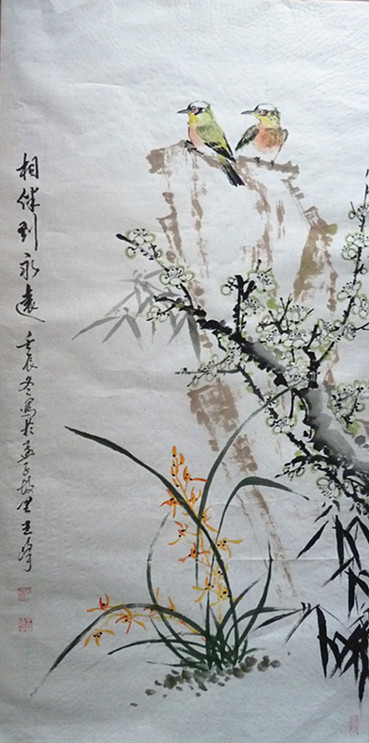 相伴到永遠
壬辰冬寫於孟子故里玉峰